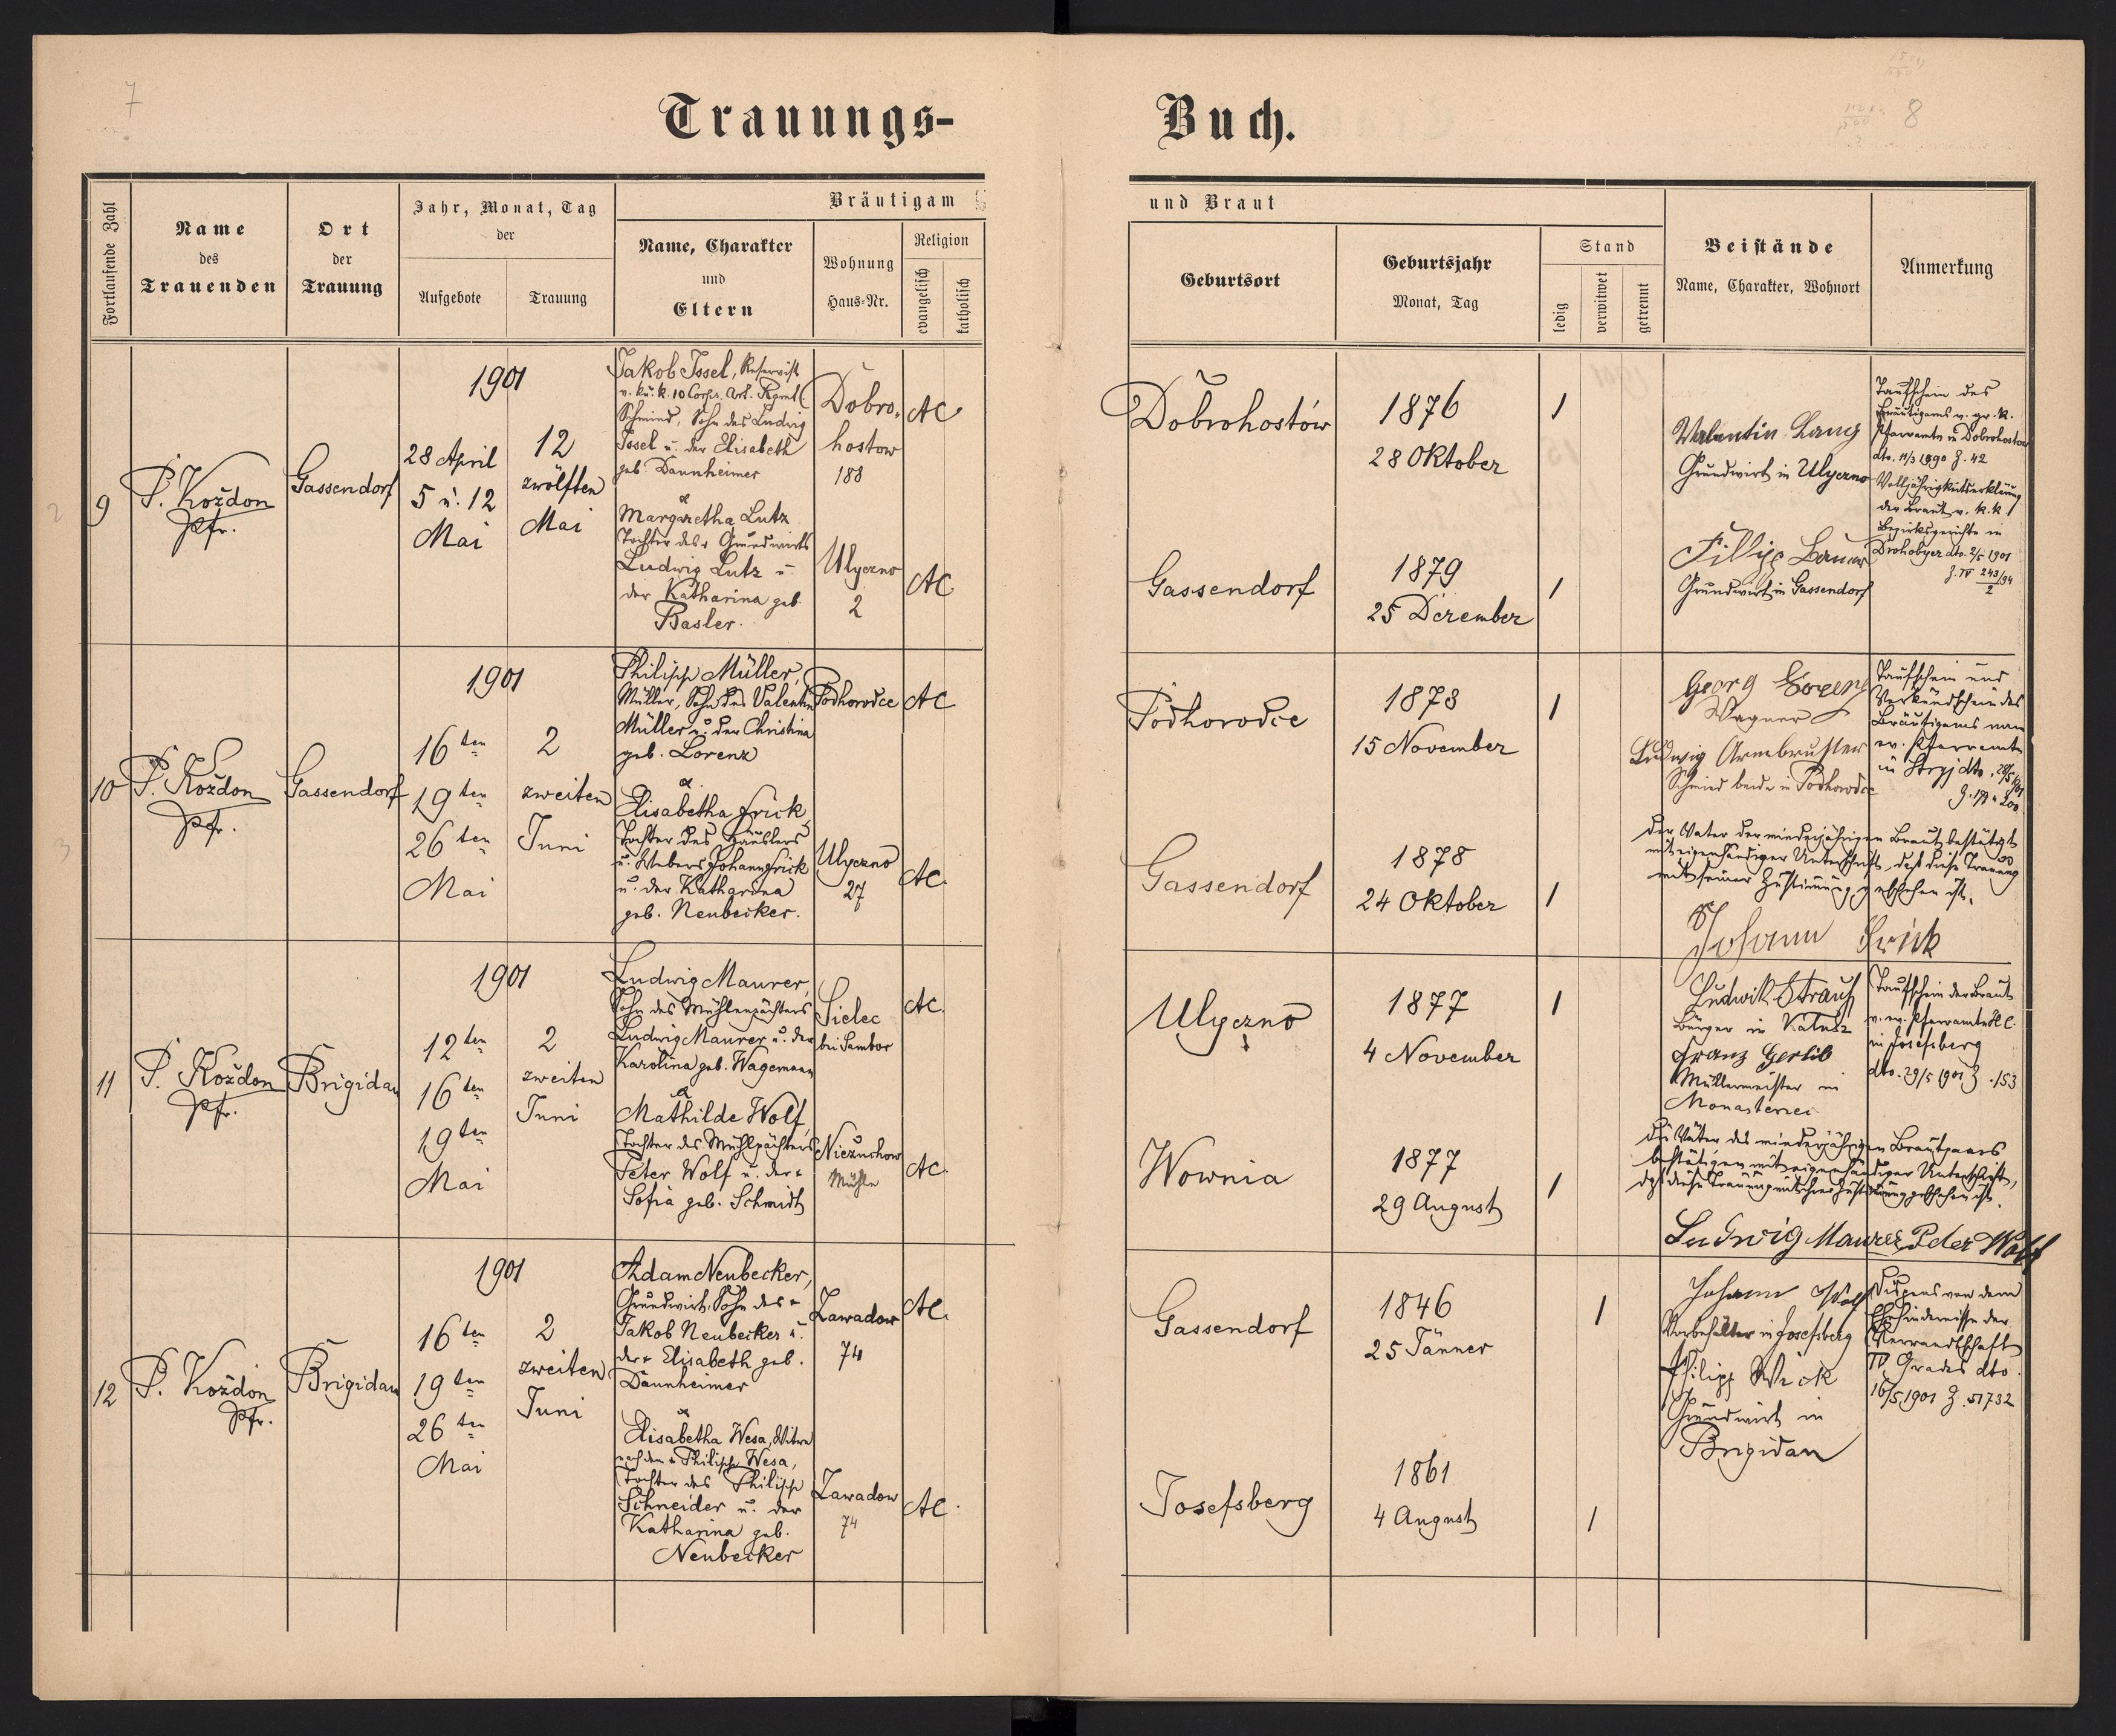 7
8
Trauungs-
Buch.
Fortlaufende Zahl
Name
des
Trauenden
Ort
der
Trauung
Jahr, Monat, Tag
der
Aufgebote
Trauung
Bräutigam
Name, Charakter
und
Eltern
Wohnung
Haus-Nr.
Religion
evangelisch
katholisch
und Braut
Geburtsort
Geburtsjahr
Monat, Tag
Stand
ledig
verwitwet
getrennt
Beistände
Name, Charakter, Wohnort
Anmerkung
9
P. Koždon
Pfr.
Gassendorf
1901
28 April
5 u. 12
Mai
12
zwölften
Mai
Jakob Issel, Reservist
v. k. u. k. 10 Corps. Art. Rgmt
Schmied, Sohn des Ludwig
Issel u. der Elisabeth
geb. Dannheimer
&
Margaretha Lutz
Tochter des + Grundwirts
Ludwig Lutz u.
der Katharina geb.
Basler.
Dobro-
hostow
188
AC
Ulyczno
2
AC
Dobrohostów
1876
28 Oktober
1
Gassendorf
1879
25 Dezember
1
Valentin Lang
Grundwirt in Ulyczno
Grundwirt in Gassendorf
Taufschein des
Bräutigams v. gr. k.
Pfarramte in Dobrohostow
dto. 11/3 1890 Z. 42
Volljährigkeitserklärung
der Braut v. k. k.
Bezirksgerichte in
Drohobycz dto. 2/5 1901
10
P. Koždon
Pfr.
Gassendorf
1901
16 ten
19 ten
26 ten
Mai
2
zweiten
Juni
Philipp Müller,
Müller, Sohn des Valentin
Müller u. der Christina
geb. Lorenz
&
Elisabetha Frick
Tochter des Häuslers
u. Webers Johann Frick
u. der Katharina
geb. Neubecker.
Podhorodce
AC
Ulyczno
27
AC.
Podhorodce
1873
15 November
1
Gassendorf
1878
24 Oktober
1
Georg
Wagner
Ludwig Armbruster
Schmied beide in Podhorodce
Taufschein und
Verkündschein des
Bräutigams vom
ev. Pfarramte
in Stryj dto.
Der Vater der minderjährigen Braut bestätigt
mit eigenhändiger Unterschrift, daß diese Trauung
mit seiner Zustimmung geschehen ist.
Johann Frick
11
P. Koždon
Pfr.
Brigidau
1901
12 ten
16 ten
19 ten
Mai
2
zweiten
Juni
Ludwig Maurer,
Sohn des Mühlenpächters
Ludwig Maurer u. der
Karolina geb. Wagemann
&
Mathilde Wolf,
Tochter des Mühlpächters
Peter Wolf u. der +
Sofia geb. Schmidt
Sielec
bei Sambor
AC.
Niezuchow
Mühle
AC.
Ulyczno
1877
4 November
1
Wownia
1877
29 August
1
Ludwik Strauß
Bürger in Kalusz
Franz Gerlib
Müllermeister in
Taufschein der Braut
v. ev. Pfarramte H. C.
in Josefsberg
dto. 29/5 1901 Z. 153
Die Väter des minderjährigen Brautpaars
bestätigen mit eigenhändiger Unterschrift,
daß diese Trauung mit ihrer Zustimmung geschehen ist.
Ludwig Maurer Peter Wolf
12
P. Koždon
Pfr.
Brigidau
1901
16 ten
19 ten
26 ten
Mai
2
zweiten
Juni
Adam Neubecker,
Grundwirt, Sohn des +
Jakob Neubecker u.
der + Elisabeth geb.
Dannheimer
&
Elisabetha Wesa, Witwe
nach dem + Philipp Wesa,
Tochter des Philipp
Schneider u. der
Katharina geb.
Neubecker
Zawadow
74
AC.
Zawadow
74
AC.
Gassendorf
1846
25 Jänner
1
Josefsberg
1861
4 August
1
Johann Wolf
Vorbehälter in Josefsberg
Philipp Wick
Grundwirt in
Brigidau
Dispens von dem
Ehehindernisse der
Verwandtschaft
IV Grades dto.
16/5 1901 Z. 51732